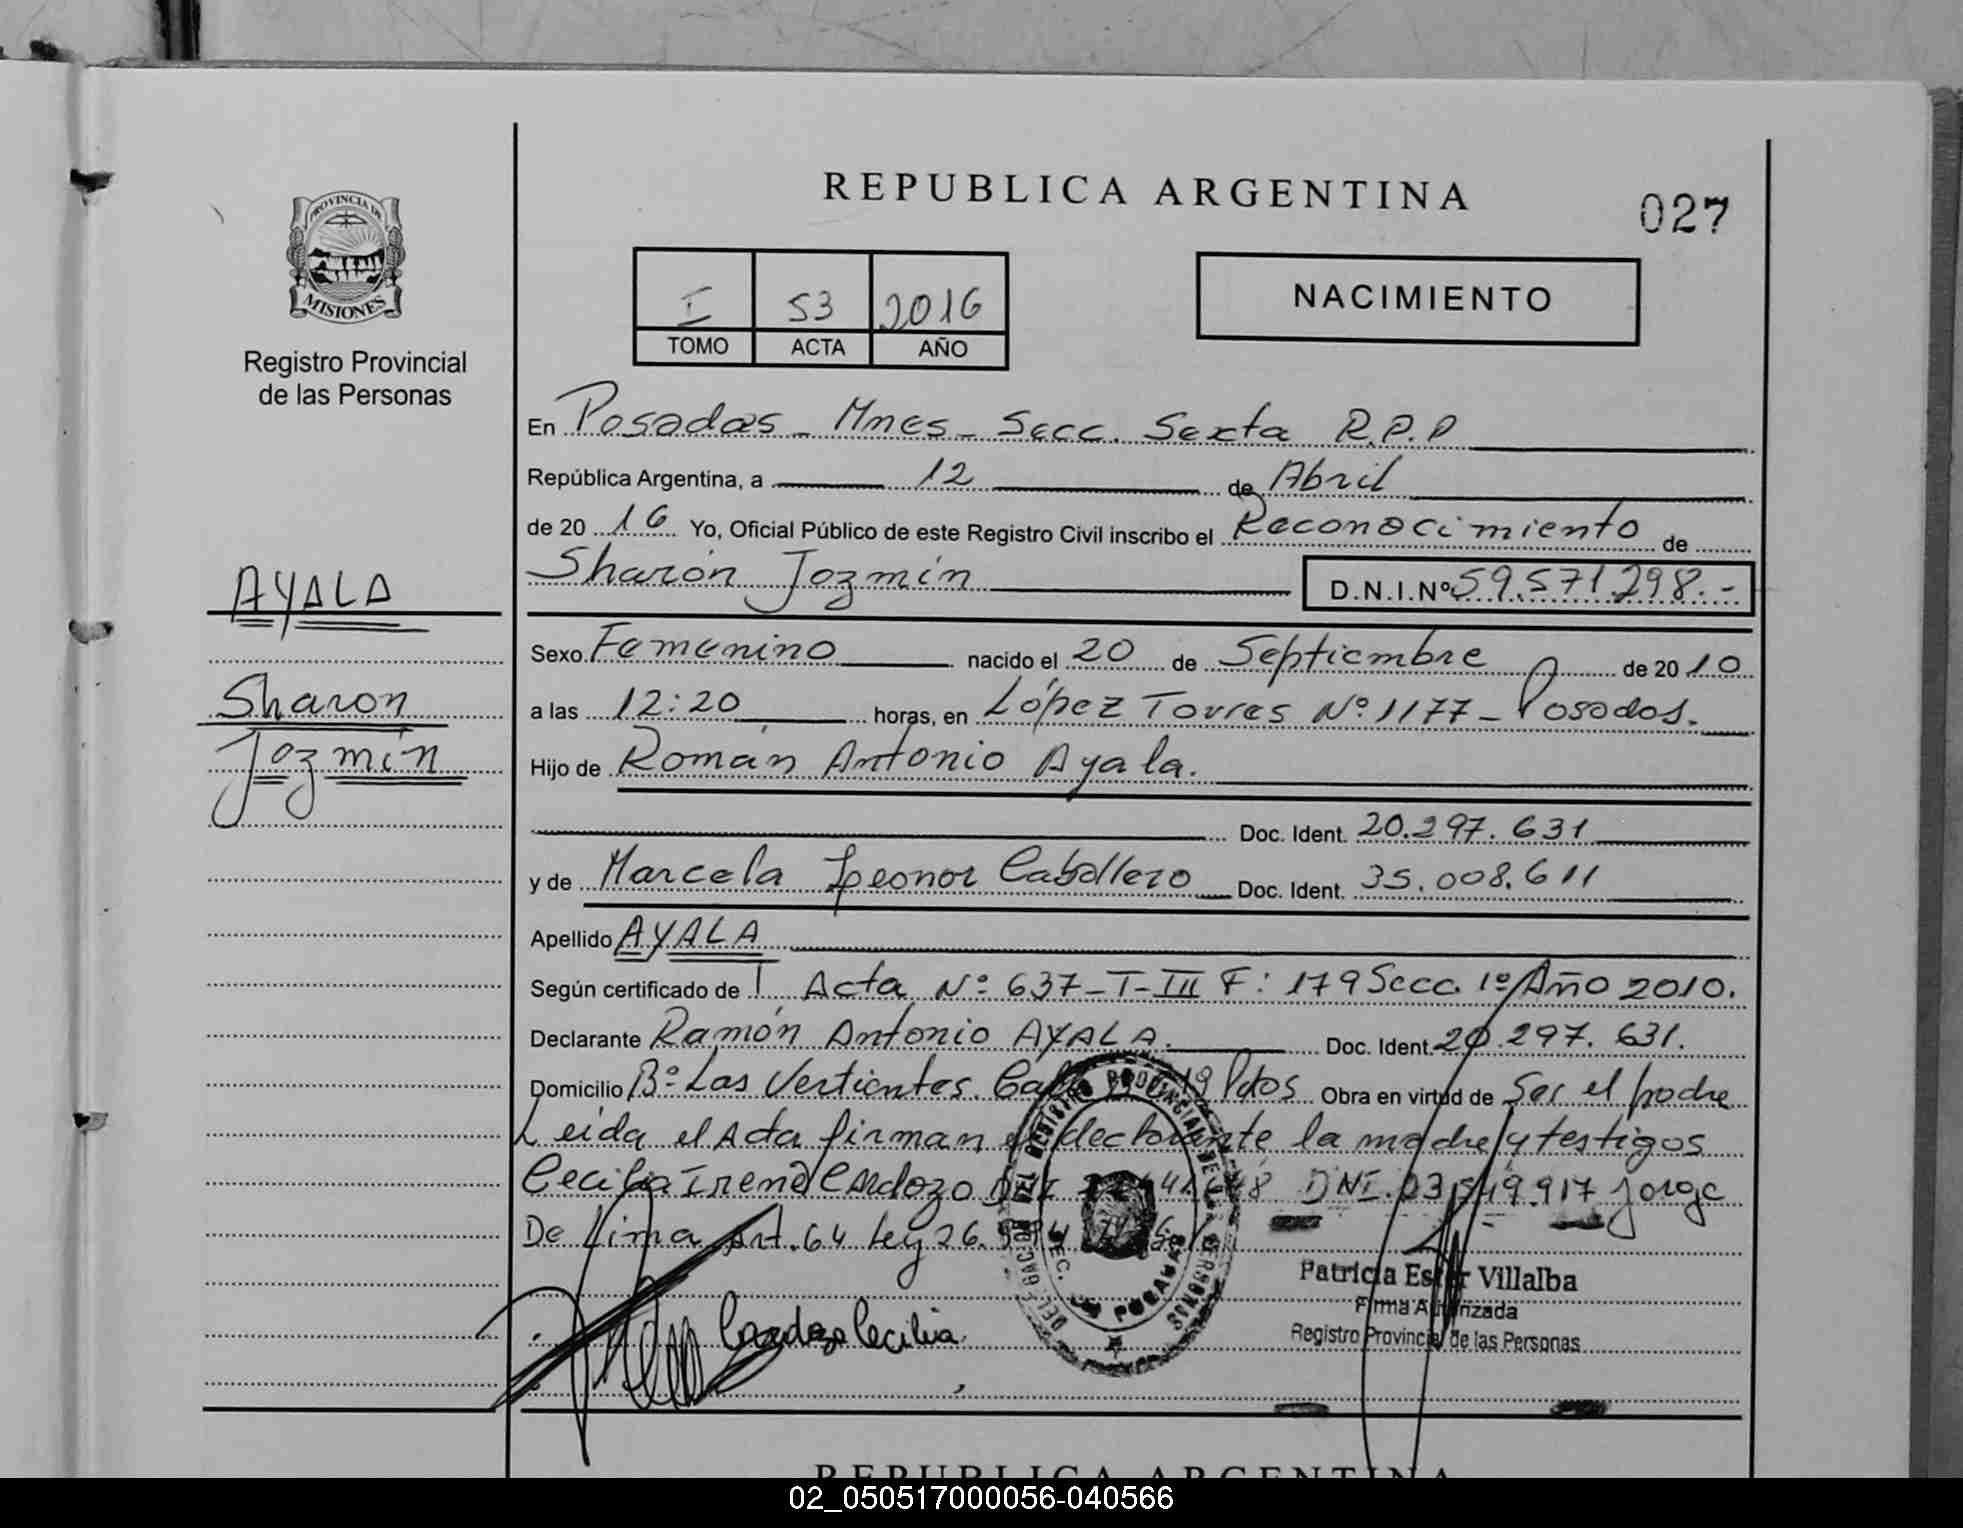 REPUBLICA ARGENTINA
027
PROVINCIA DE
MISIONES
Registro Provincial
de las Personas
I 53 2016
TOMO ACTA AÑO
NACIMIENTO
En Posadas - Mnes - Secc. Sexta R.P.P
República Argentina, a 12 de Abril
de 20 16 Yo, Oficial Público de este Registro Civil inscribo el Reconocimiento de
Sharon Jazmín D.N.I.Nº 59.571.298.-
AYALA
Sharon
Jazmín
Sexo Femenino nacido el 20 de Septiembre de 20 10
a las 12:20 horas, en López Torres Nº 1177 - Posadas.
Hijo de Román Antonio Ayala.
Doc. Ident. 20.297.631
y de Marcela Leonor Caballero Doc. Ident. 35.008.611
Apellido AYALA
Según certificado de Acta Nº 637-T-III F: 179 Secc. 1º Año 2010.
Declarante Ramón Antonio AYALA. Doc. Ident. 20.297.631.
Domicilio Bº Las Vertientes. 19 Pdas Obra en virtud de Ser el padre
Leida el Acta firman el declarante la madre y testigos
Cecilia Irene Cardozo DNI. Jorge
De Lima Art. 64 Ley 26.
Cardozo Cecilia
Patricia Ester Villalba
Firma Autorizada
Registro Provincial de las Personas
REPUBLICA ARGENTINA
02_050517000056-040566